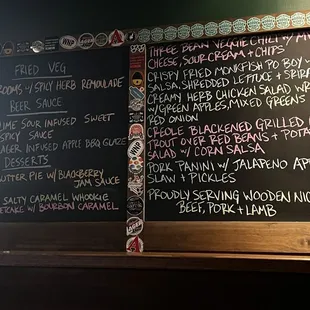 FRIED VEG
ROOMS w/ SPICY HERB REMOULADE
BEER SAUCE
LIME SOUR INFUSED SWEET
SPICY SAUCE
LAGER INFUSED APPLE BBQ GLAZE
DESSERTS
BUTTER PIE w/ BLACKBERRY
JAM SAUCE
SALTY CARAMEL WHOOKIE
CAKE w/ BOURBON CARAMEL
THREE BEAN VEGGIE CHILI w/
CHEESE, SOUR CREAM + CHIPS
CRISPY FRIED MONKFISH PO BOY w/
SALSA, SHREDDED LETTUCE + SRIR
CREAMY HERB CHICKEN SALAD WR
w/ GREEN APPLES, MIXED GREENS
RED ONION
CREOLE BLACKENED GRILLED
TROUT OVER RED BEANS + POTA
SALAD w/ CORN SALSA
PORK PANINI w/ JALAPENO AP
SLAW + PICKLES
PROUDLY SERVING WOODEN NIC
BEEF, PORK + LAMB